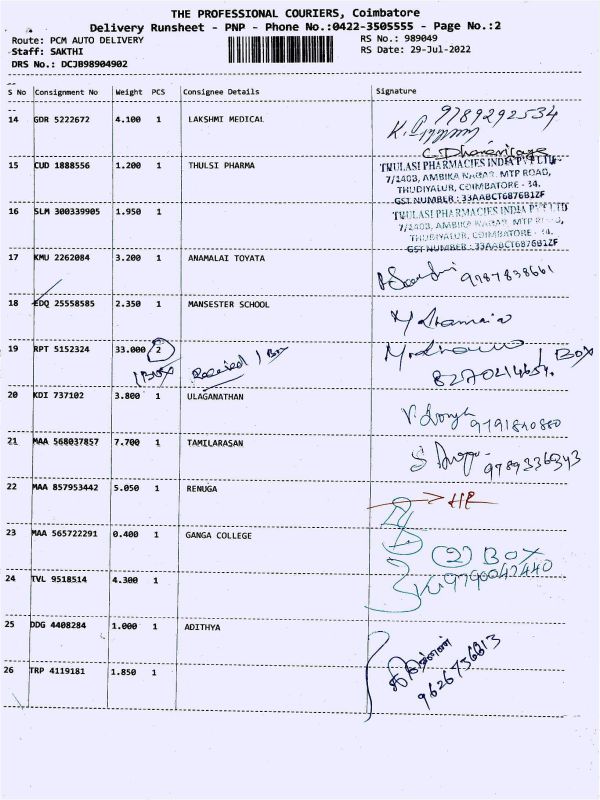 THE PROFESSIONAL COURIERS, Coimbatore
Delivery Runsheet - PNP - Phone No.:0422-3505555 - Page No.:2
Route: PCM AUTO DELIVERY RS No.: 989049
Staff: SAKTHI RS Date: 29-Jul-2022
DRS No.: DCJB98904902
S No Consignment No Weight PCS Consignee Details Signature
14 GDR 5222672 4.100 1 LAKSHMI MEDICAL
9789292534
15 CUD 1888556 1.200 1 THULSI PHARMA
THULASI PHARMACIES INDIA PVT LTD
7/1403, AMBIKA NAGAR, MTP ROAD,
THUDIYALUR, COIMBATORE - 34.
GST NUMBER : 33AABCT6876B1ZF
16 SLM 300339905 1.950 1
THULASI PHARMACIES INDIA PVT LTD
7/1403, AMBIKA NAGAR, MTP ROAD,
THUDIYALUR, COIMBATORE - 34.
GST NUMBER : 33AABCT6876B1ZF
17 KMU 2262084 3.200 1 ANAMALAI TOYATA
9787838661
18 EDQ 25558585 2.350 1 MANSESTER SCHOOL
19 RPT 5152324 33.000 2
1 Box Received 1 Box 1 Box
20 KDI 737102 3.800 1 ULAGANATHAN
9791840880
21 MAA 568037857 7.700 1 TAMILARASAN
9789336343
22 MAA 857953442 5.050 1 RENUGA
23 MAA 565722291 0.400 1 GANGA COLLEGE
2 Box
9790047440
24 TVL 9518514 4.300 1
25 DDG 4408284 1.000 1 ADITHYA
9626756813
26 TRP 4119181 1.850 1